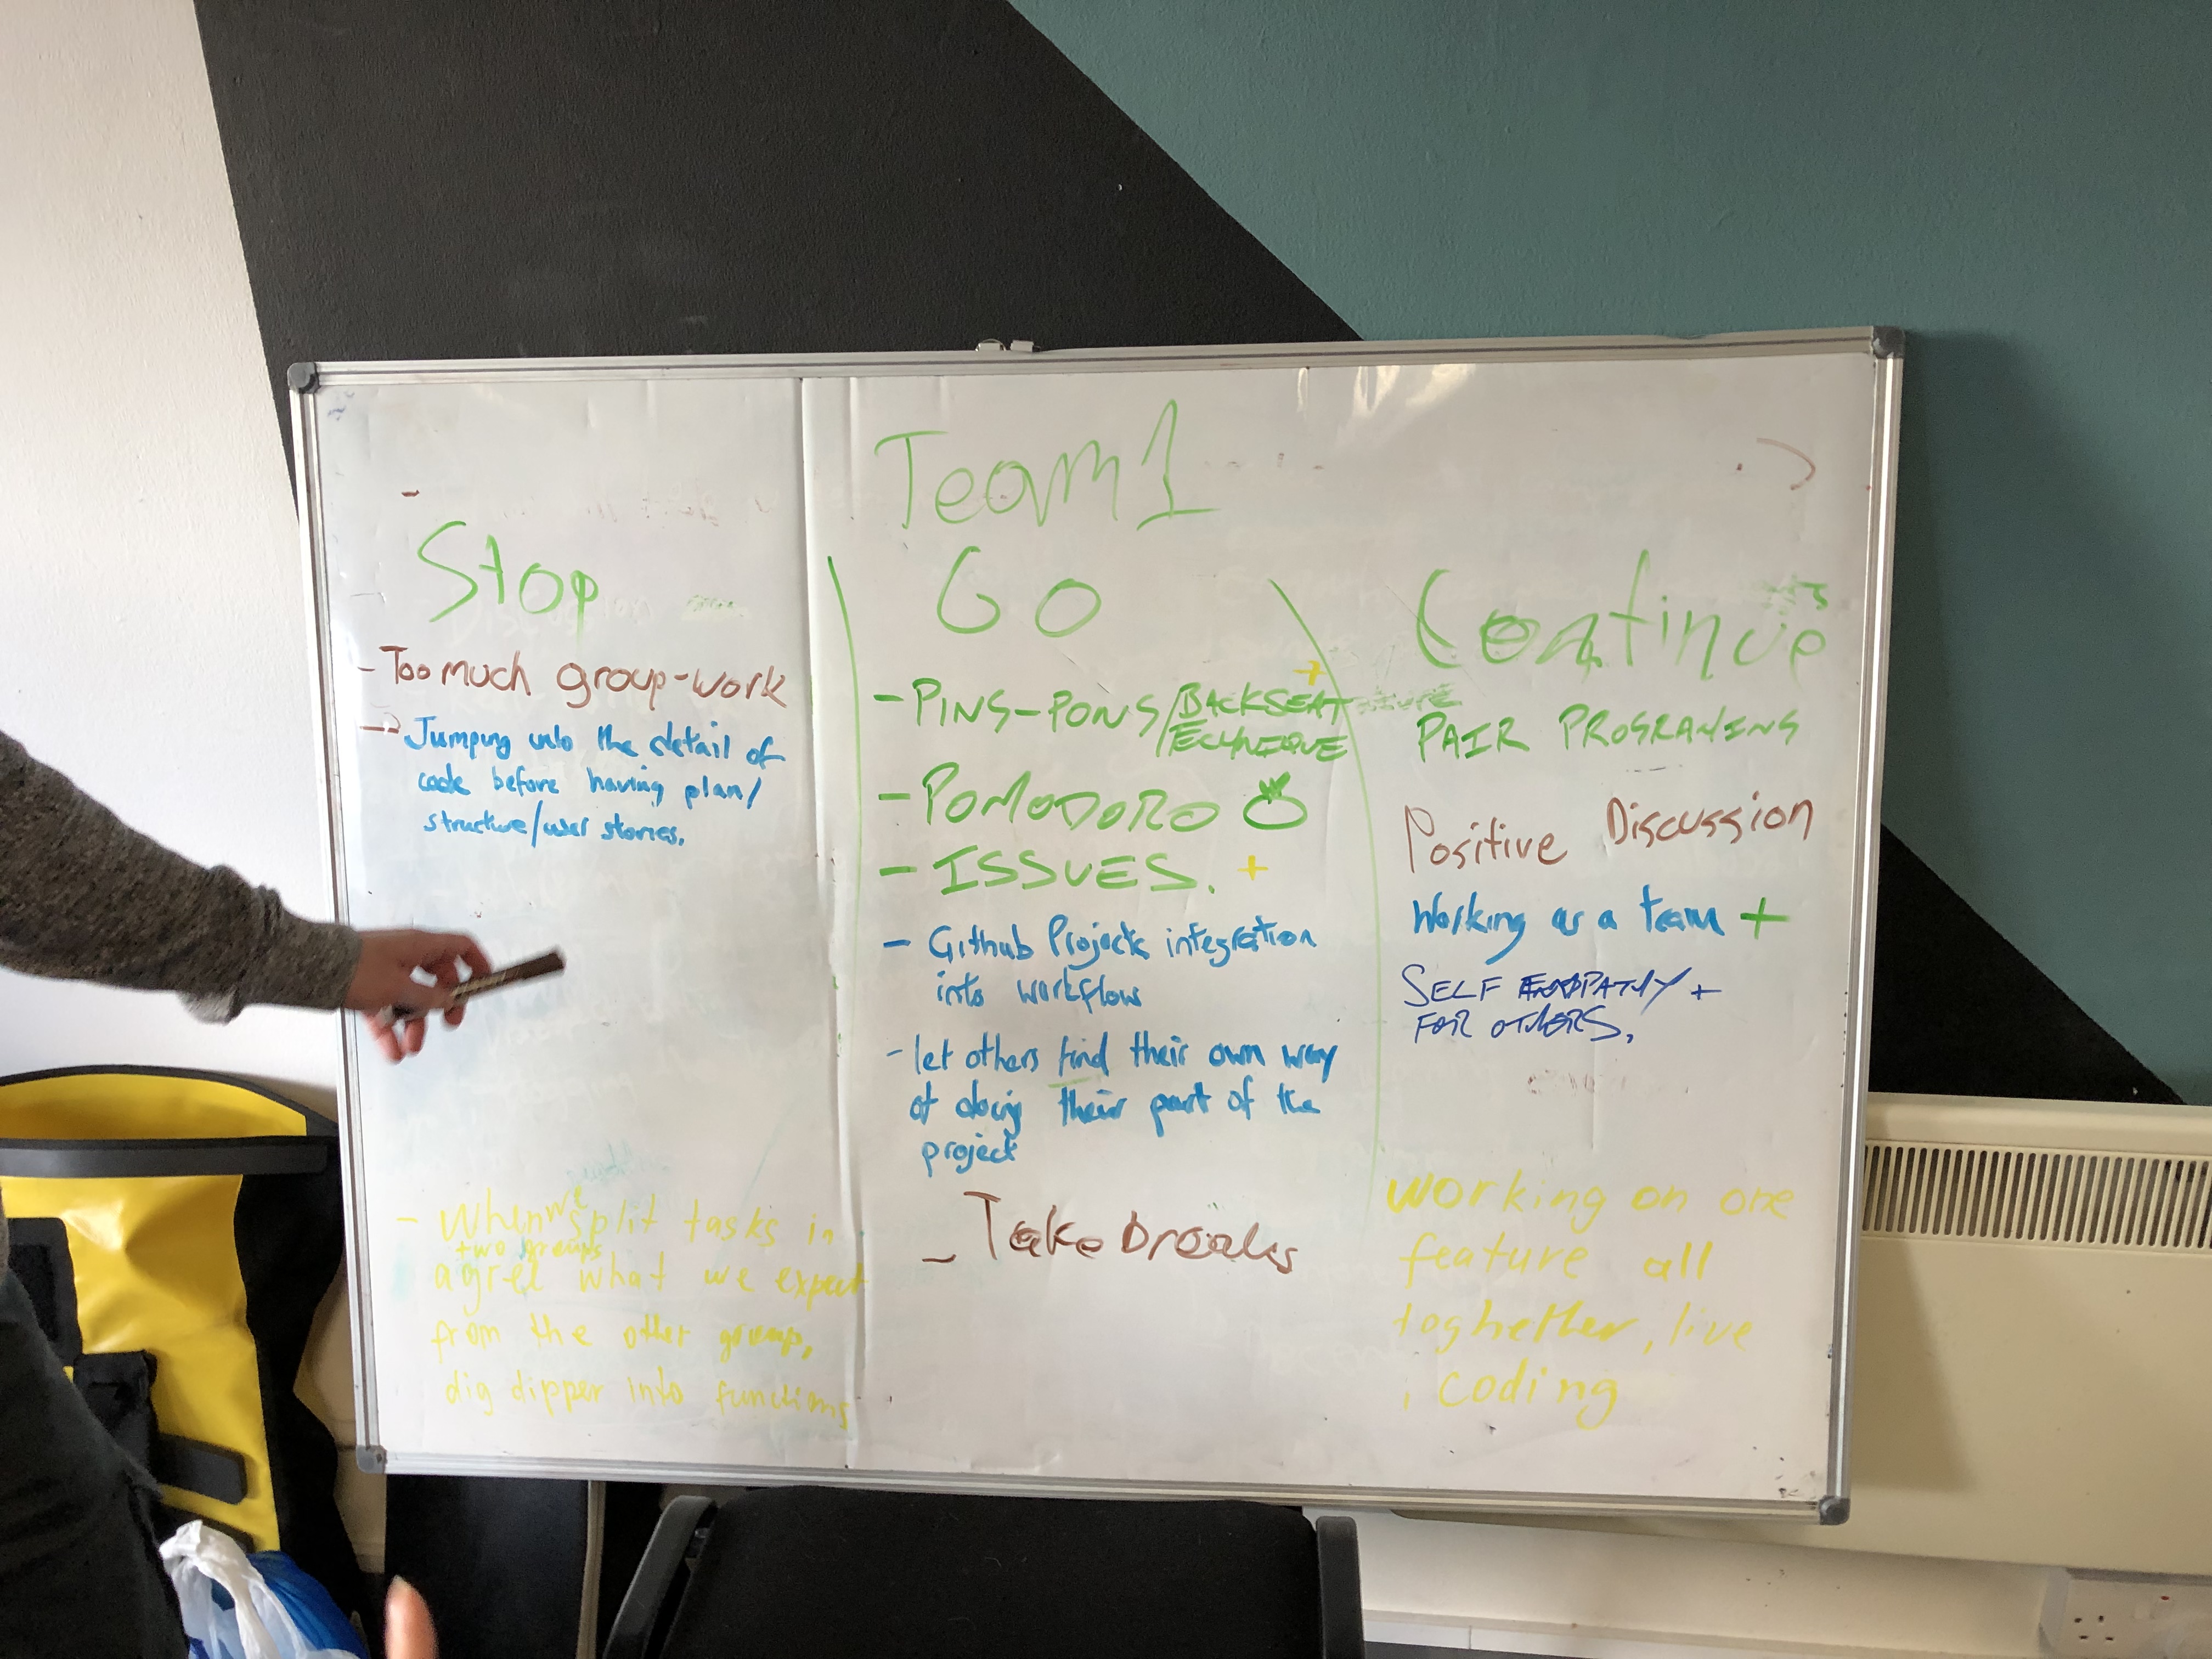 Team 1
Stop
- Too much group-work
- Jumping into the detail of
code before having plan/
structure/user stories.
- When we split tasks in
two groups
agree what we expect
from the other group,
dig dipper into functions
GO
- PING-PONG/BACKSEAT +
TECHNIQUE
- POMODORO
- ISSUES. +
- Github Projects integration
into workflow
- let others find their own way
of doing their part of the
project
- Take breaks
Continue
PAIR PROGRAMING
Positive Discussion
Working as a team +
SELF EMPATHY +
FOR OTHERS.
working on one
feature all
toghether, live
coding